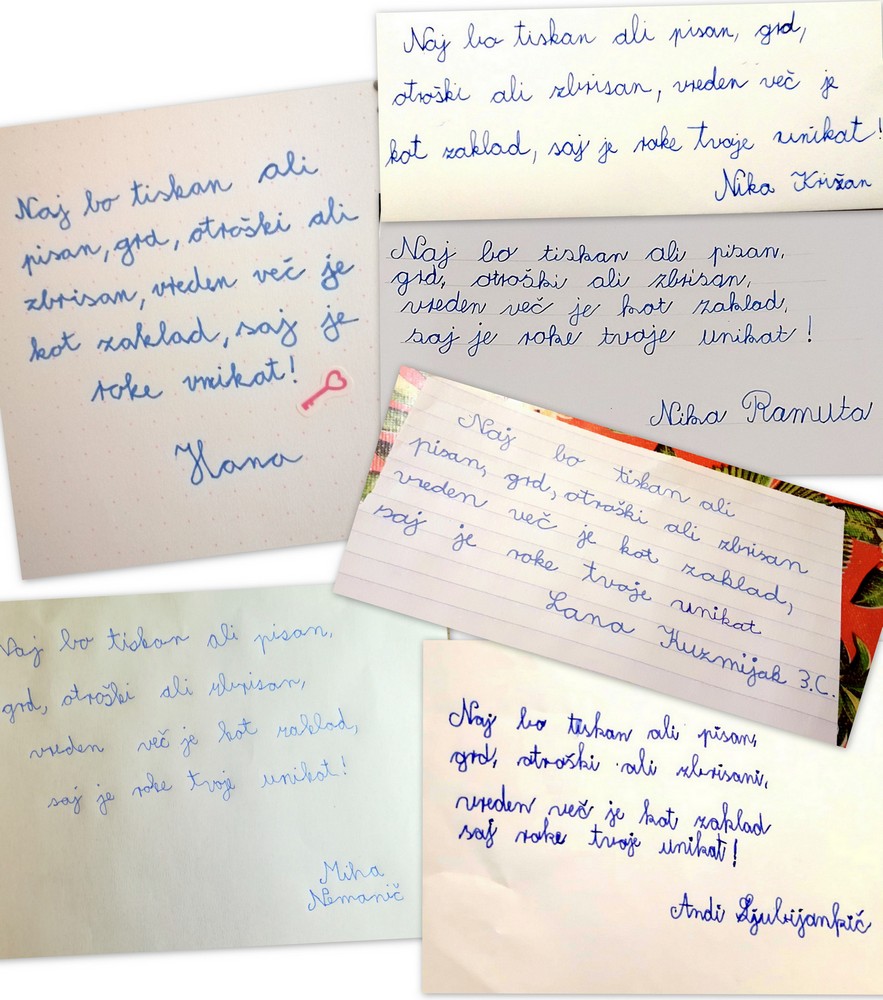 Naj bo tiskan ali
pisan, grd, otroški ali
zbrisan, vreden več je
kot zaklad, saj je
roke unikat!
Hana
Naj bo tiskan ali pisan, grd,
otroški ali zbrisan, vreden več je
kot zaklad, saj je roke tvoje unikat!
Nika Križan
Naj bo tiskan ali pisan,
grd, otroški ali zbrisan,
vreden več je kot zaklad,
saj je roke tvoje unikat!
Nika Ramuta
Naj bo tiskan ali
pisan, grd, otroški ali zbrisan
vreden več je kot zaklad,
saj je roke tvoje unikat
Lana Kuzmijak 3.C.
Naj bo tiskan ali pisan,
grd, otroški ali zbrisan,
vreden več je kot zaklad,
saj je roke tvoje unikat!
Miha
Nemanič
Naj bo tiskan ali pisan,
grd, otroški ali zbrisani,
vreden več je kot zaklad
saj roke tvoje unikat!
Andi Ljubijankić